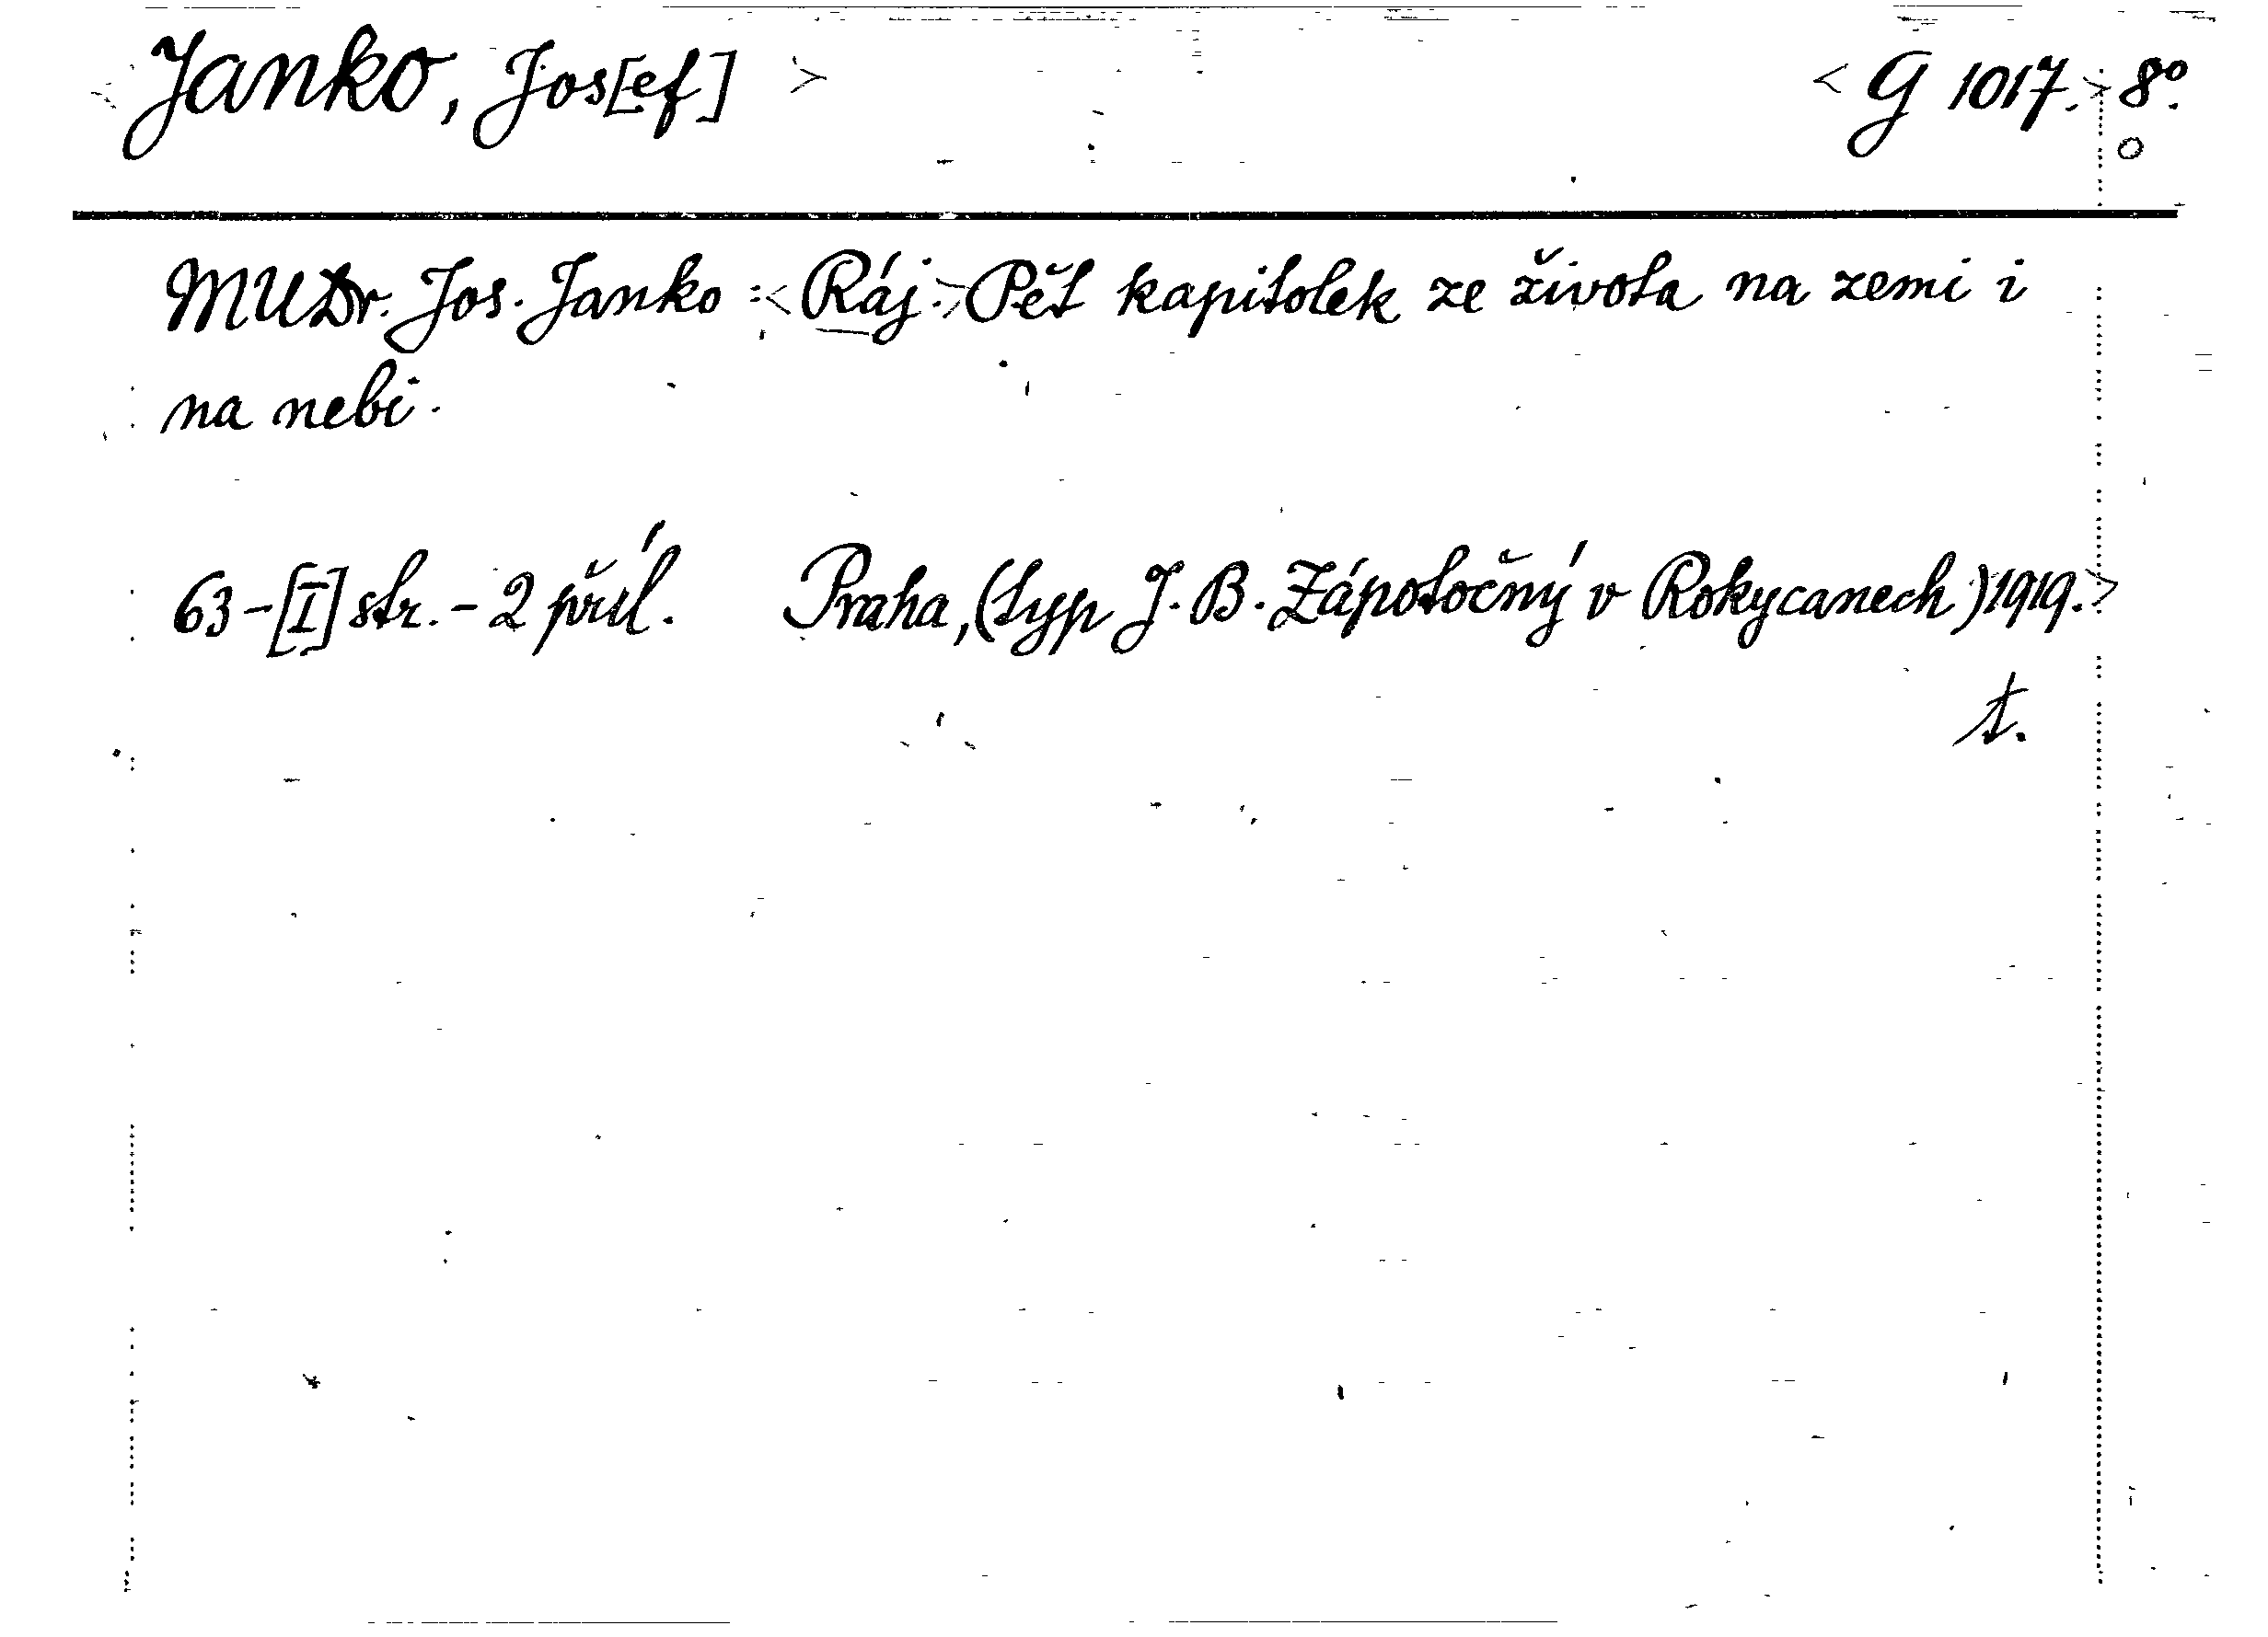 <Janko, Jos[ef]> <G 1017.> 8°.
MUDr. Jos. Janko: <Ráj.> Pět kapitolek ze života na zemi i
na nebi.
63-[I] str. - 2 příl. Praha, (typ J. B. Zápotočný v Rokycanech) 1919.>
t.